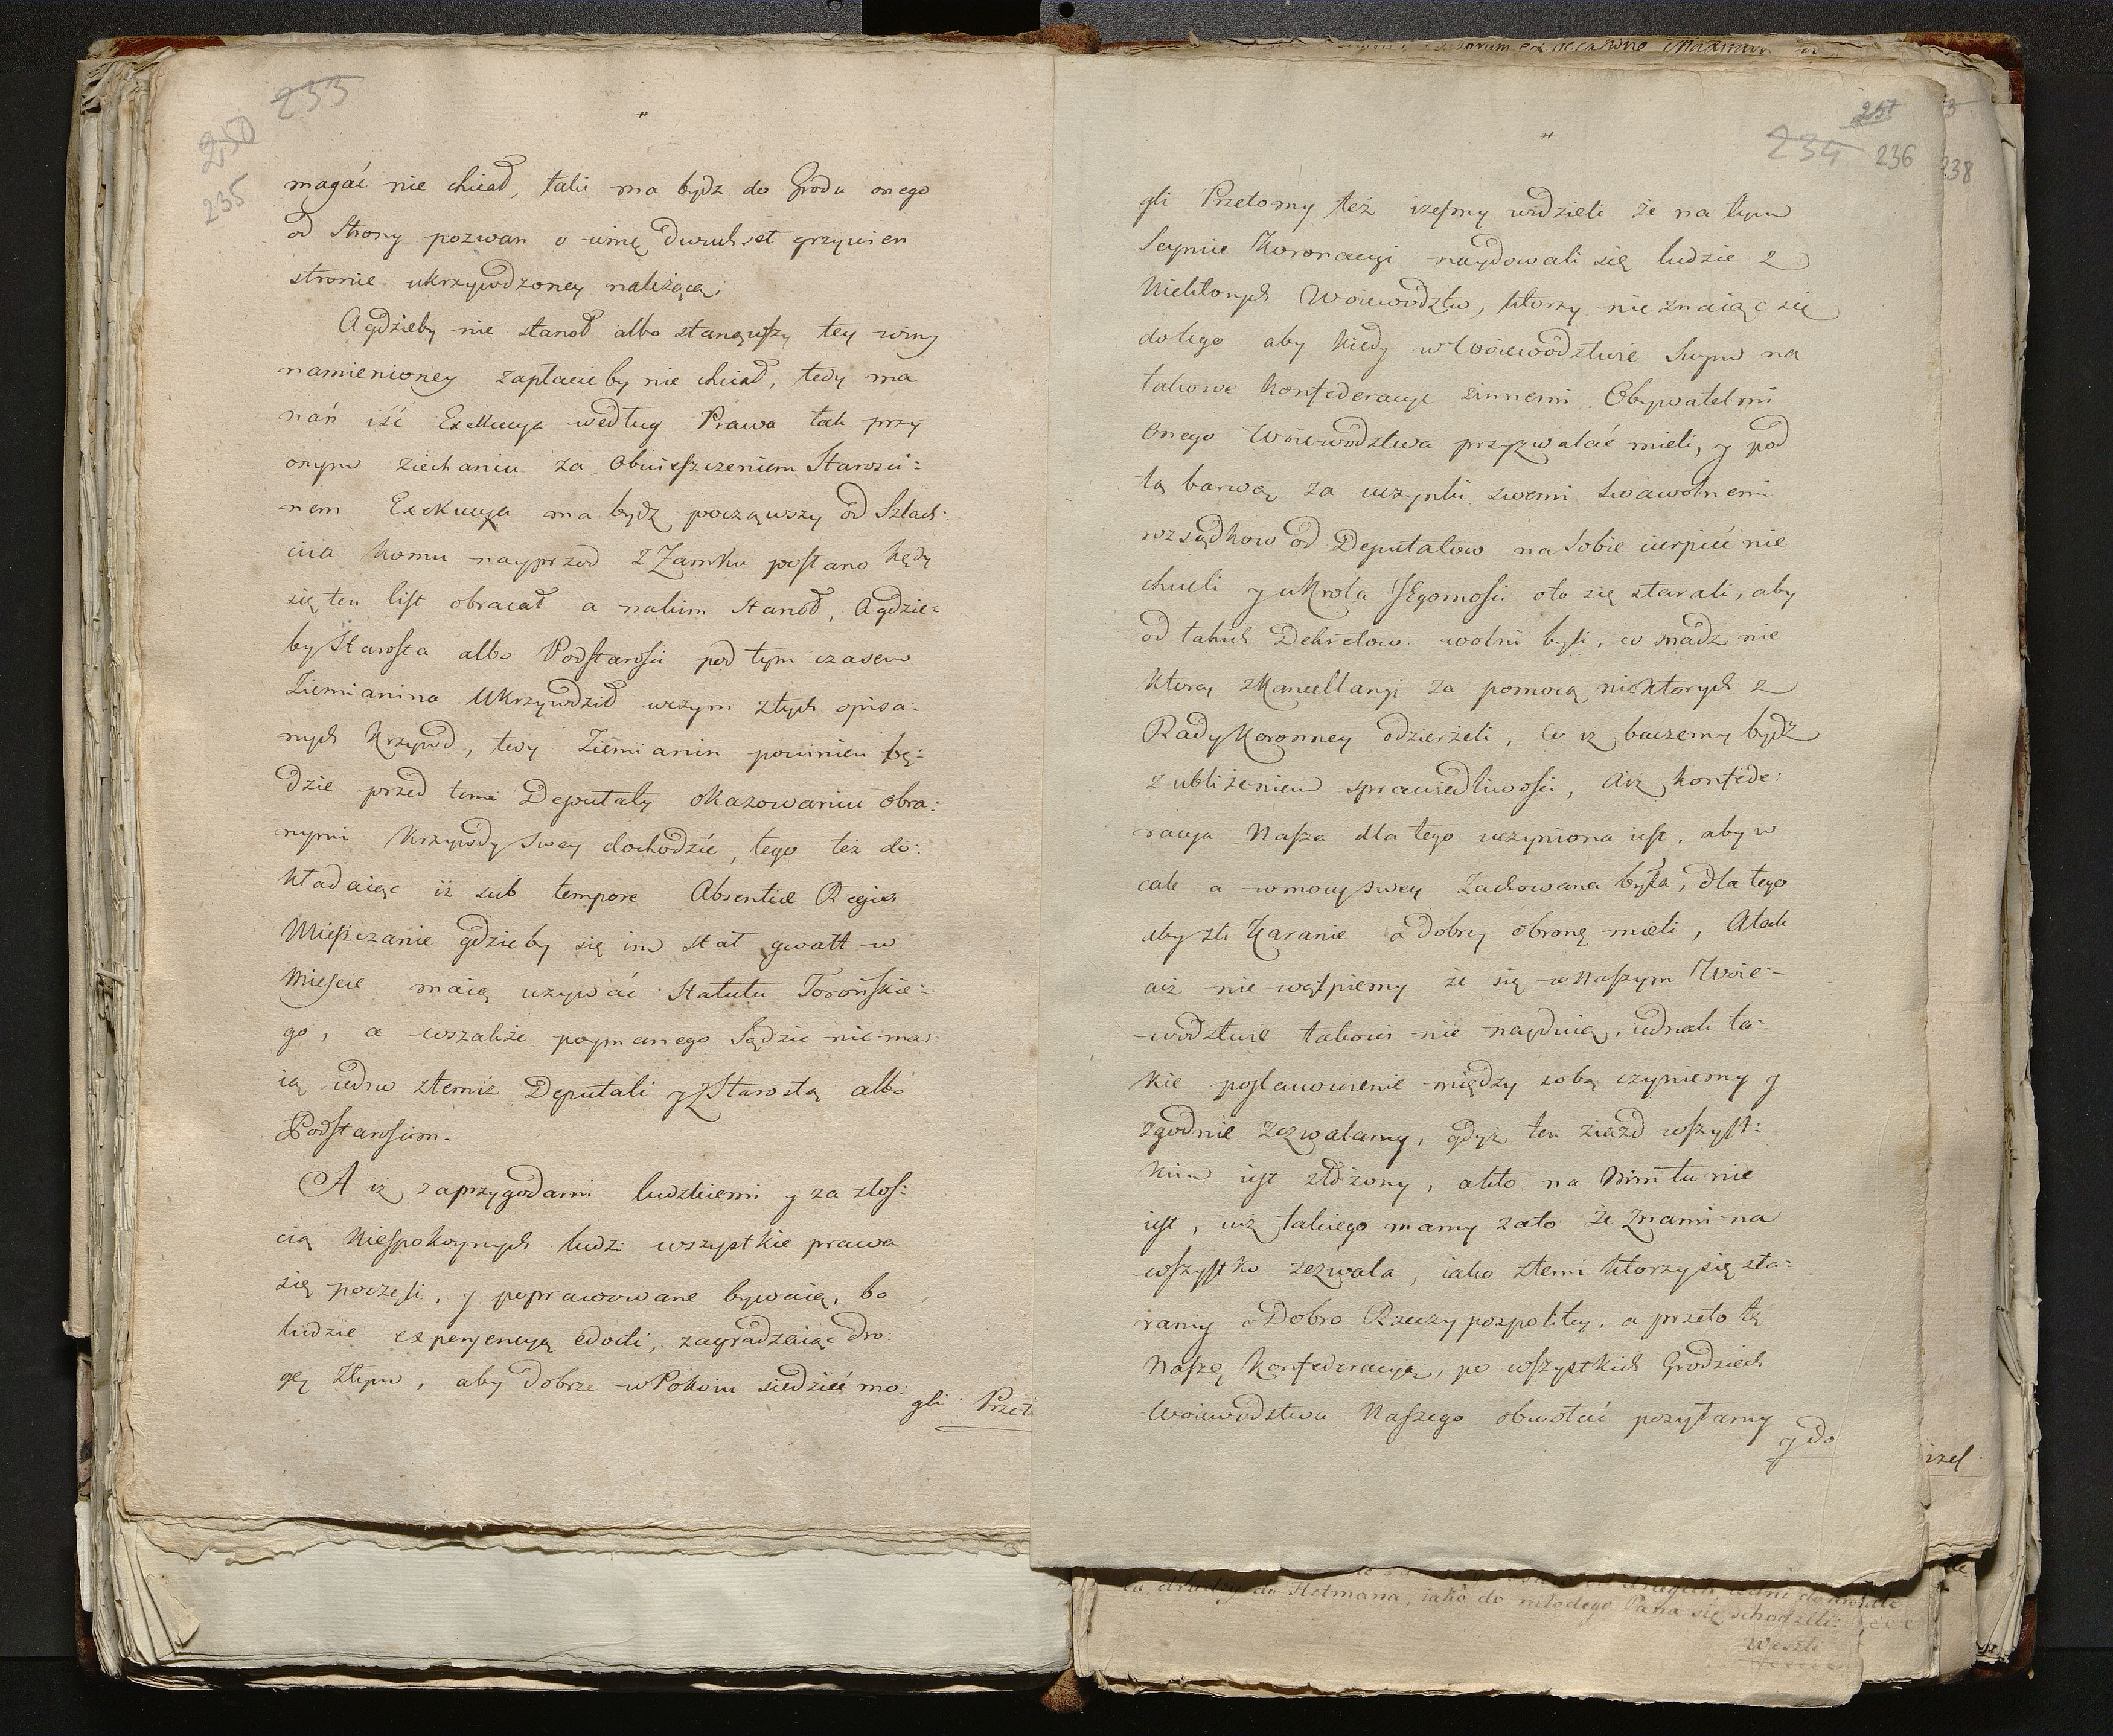 233
250
235
magać nie chciał, taki ma bydz do Grodu onego
od Strony pozwan o winę dwuchset grzywien
stronie ukrzywdzoney należącą.
A gdzieby nie stanoł albo stanąwszy tey winy
namienioney zapłacieby nie chciał, tedy ma
nań iść Exekucya według Prawa tak przy
onym ziechaniu za obwieszczeniem Starosci=
nem Exekucya ma bydz począwszy od Szlach=
cica komu nayprzod z Zamku posłano kędy
się ten list obracał a nakim stanoł, A gdzie=
by Starosta albo Podstarosci pod tym czasem
Ziemianina Ukrzywdził wczym ztych opisa=
nych krzywd, tedy Ziemianin powinien bę=
dzie przed temi Deputaty okazowaniu obra=
nymi krzywdy swey dochodzić, tego też do=
kładaiąc iż sub tempore Absentiæ Regis
Mieszczanie gdzieby się im stał gwałt w
Mieście maią uzywać Statutu Toronskie=
go, a wszakże poymanego Sądzić nie ma=
ią iedno ztemiż Deputati y z Starostą albo
Podstaroscim.
A iż zaprzygodami ludzkiemi y za złoś=
cią Niespokoynych ludzi wszystkie prawa
się poczęli, y poprawowane bywaią, bo
ludzie experyencyą edocti, zagradzaiąc dro=
gę złym, aby dobrze w Pokoiu siedzieć mo=
gli Przet
251
234 236
238
gli Przetomy też iżesmy widzieli że na tym
Seymie Koronacyi naydowali się ludzie z
Niektorych Woiewodztw, ktorzy nie znaiąc się
do tego aby kiedy w Woiewodztwie Swym na
takowe Konfederacye zinnemi Obywatelmi
onego Woiewodztwa przyzwalać mieli, y pod
tą barwą za uczynki swemi swawolnemi
rozsądkow od Deputatow na sobie cierpieć nie
chcieli y u Krola JEgomosci oto się starali, aby
od takich Dekretow wolni byli, co snadz nie
ktorzy z Kancellaryi za pomocą niektorych z
Rady Koronney odzierżeli, Co iż baczemy bydz
z ubliżeniem sprawiedliwosci, Aiż Konfede=
racya Nasza dla tego uczyniona iest, aby w
cale a w mocy swey Zachowana była, dla tego
aby zli Karanie a dobrzy obronę mieli, A tak
aiż nie wątpiemy że się w Naszym Woie=
wodztwie takowi nie nayduią, iednak ta=
kie postanowienie między sobą czyniemy y
zgodnie zezwalamy, gdyż ten ziazd wszyst=
kim iest złożony, a kto na nim tu nie
iest, iuż takiego mamy zato że z nami na
wszystko zezwala, iako ztemi ktorzy się sta=
ramy o Dobro Rzeczypospolitey, a przeto tę
Naszę Konfederacyą, po wszystkich Grodziech
Woiewodstwa Naszego obwołać pozyłamy
y do
do Hetmana, iako do młodego Pana się schodzili
Weszli